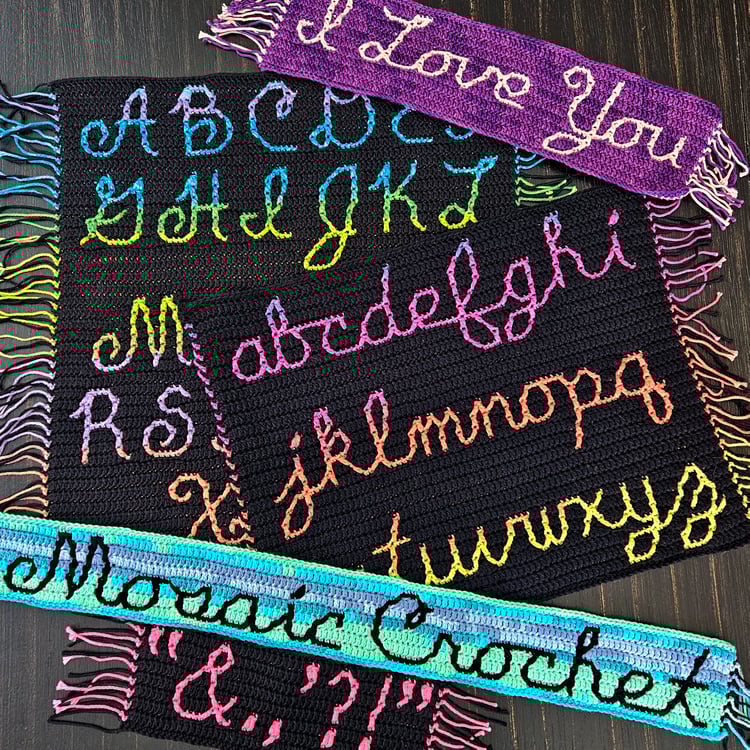 I Love You
A B C D E F
G H I J K L
M
R S
X
abcdefghi
jklmnopq
rstuvwxyz
Mosaic Crochet
"&.,'?!"